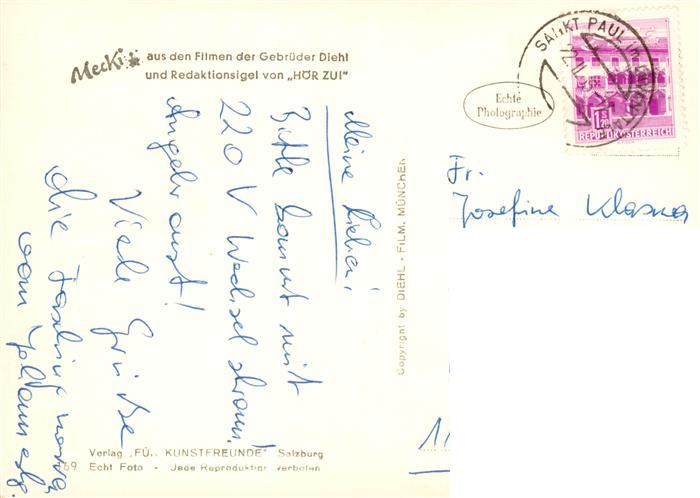 Mecki aus den Filmen der Gebrüder Diehl
und Redaktionsigel von „HÖR ZU!"
Echte
Photographie
SANKT PAUL im
1 S 20
REPUBLIK ÖSTERREICH
Fr.
Josefine
Meine Lieben!
Bitte kommt mit
220 V Wechselstrom!
Angebraust!
Viele Grüße
die
vom
Copyright by DIEHL - FILM, MÜNCHEN
Verlag „FÜ.. KUNSTFREUNDE" Salzburg
169 Echt Foto - Jede Reproduktion verboten
11